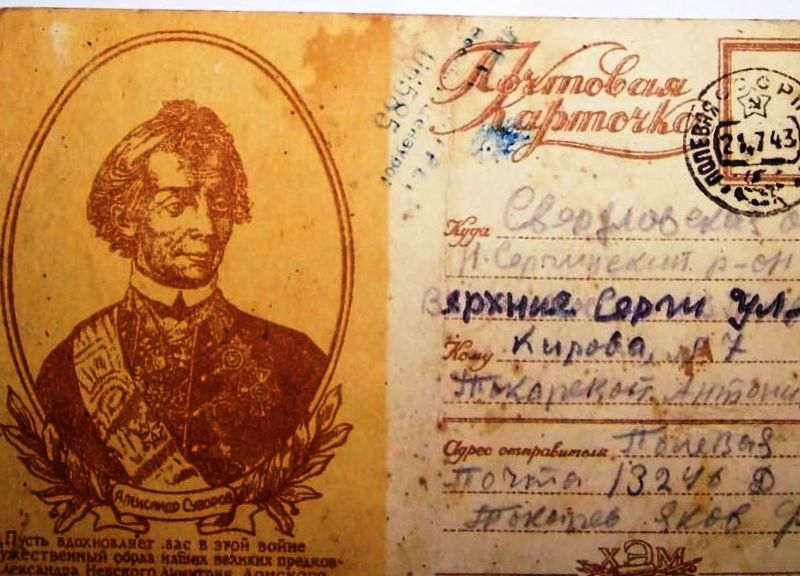 Почтовая
Карточка
ПОЛЕВАЯ
21.7.43
Куда Свердловская о
Н. Сергинский р-он
Верхние Серги ул.
Кому Кирова, 7
Токаревой Антони
Адрес отправителя Полевая
Почта 13246 Д
Токарев Яков Ф
ХЭМ
АЛЕКСАНДР СУВОРОВ
Пусть вдохновляет вас в этой войне
ужественный образ наших великих предков-
лександра Невского, Димитрия Донского